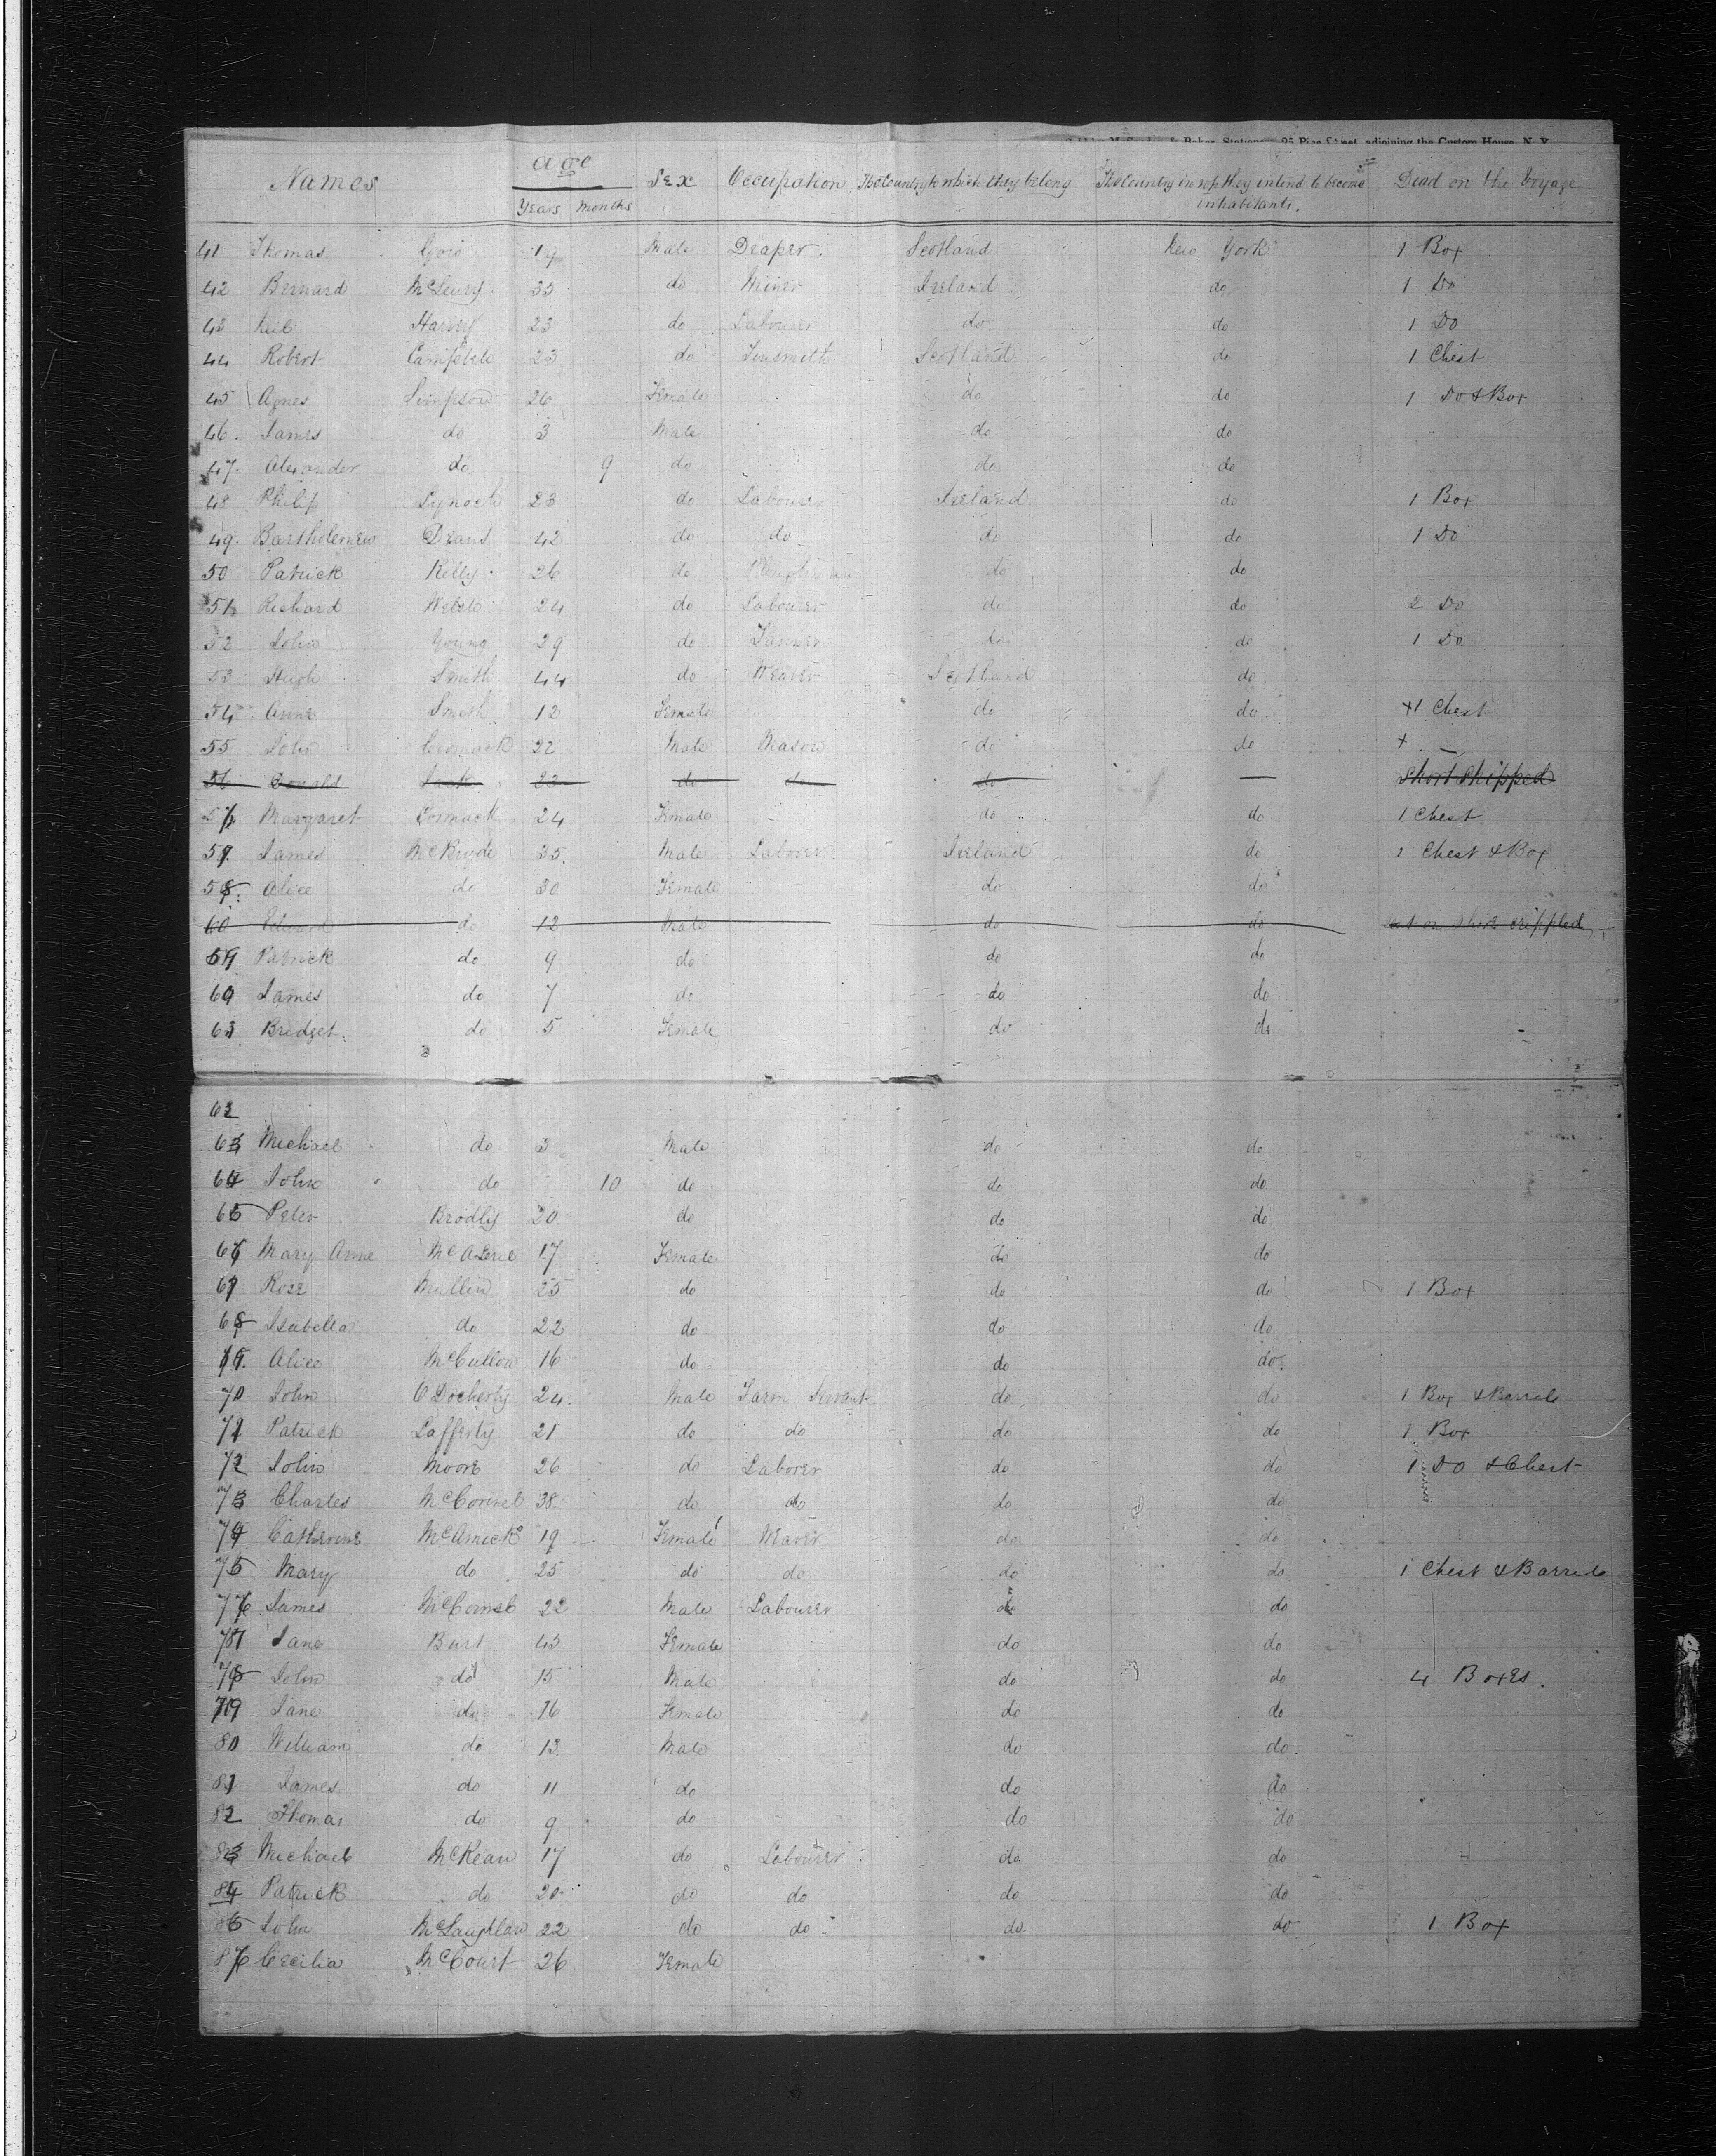 Names Age Sex Occupation The Country to which they belong The Country in wh they intend to become inhabitants. Died on the Voyage
Years Months
41 Thomas 19 Male Draper. Scotland New York 1 Box
42 Bernard 35 do Miner Ireland do 1 Do
43 Neil Harvey 23 do Labourer do do 1 Do
44 Robert Campbell 23 do Tinsmith Scotland do 1 Chest
45 Agnes Simpson 26 Female do do 1 Do & Box
46. James do 3 Male do do
47. Alexander do 9 do do do
48 Philip Lynoch 23 do Labourer Ireland do 1 Box
49. Bartholemew Deans 42 do do do do 1 Do
50 Patrick Kelly 26 do Ploughman do do
51 Richard Welsh 24 do Labourer do do 2 Do
52 John Young 29 do do do 1 Do
53 Hugh Smith 44 do Weaver Scotland do
54 Anne Smith 12 Female do do +1 Chest
55 John Cormack 22 Male Mason do do +
56 Donald 22 do do do Short Shipped
57 Margaret Cormack 24 Female do do 1 Chest
James McBryde 35. Male Laborer Ireland do 1 Chest & Box
58 Alice do 30 Female do do
60 Edward do 12 Male do do on shore crippled
59 Patrick do 9 do do do
60 James do 7 do do do
61 Bridget do 5 Female do do
62
63 Michael do 3 Male do do
64 John do 10 do do do
65 Peter Brodly 20 do do do
66 Mary Anne 17 Female do do
67 Rose Mullin 25 do do do 1 Box
68 Isabella do 22 do do do
69. Alice McCullow 16 do do do.
70 John O Docherty 24. Male Farm Servant do do 1 Box & Barrel
71 Patrick Lafferty 21 do do do do 1 Box
72 John Moore 26 do Laborer do do 1 Do & Chest
73 Charles McConnel 38 do do do do
74 Catherine McAmick 19 Female Waver do do
75 Mary do 25 do do do do 1 Chest & Barrel
76 James McConnel 22 Male Labourer do do
77 Jane Burt 45 Female do do
78 John do 15 Male do do 4 Boxes.
79 Jane do 16 Female do do
80 William do 13 Male do do
81 James do 11 do do do
82 Thomas do 9 do do do
83 Michael McKean 17 do Labourer do do
84 Patrick do 20 do do do do
85 John McLaughlan 22 do do do do 1 Box
86 Cecilia McCourt 26 Female